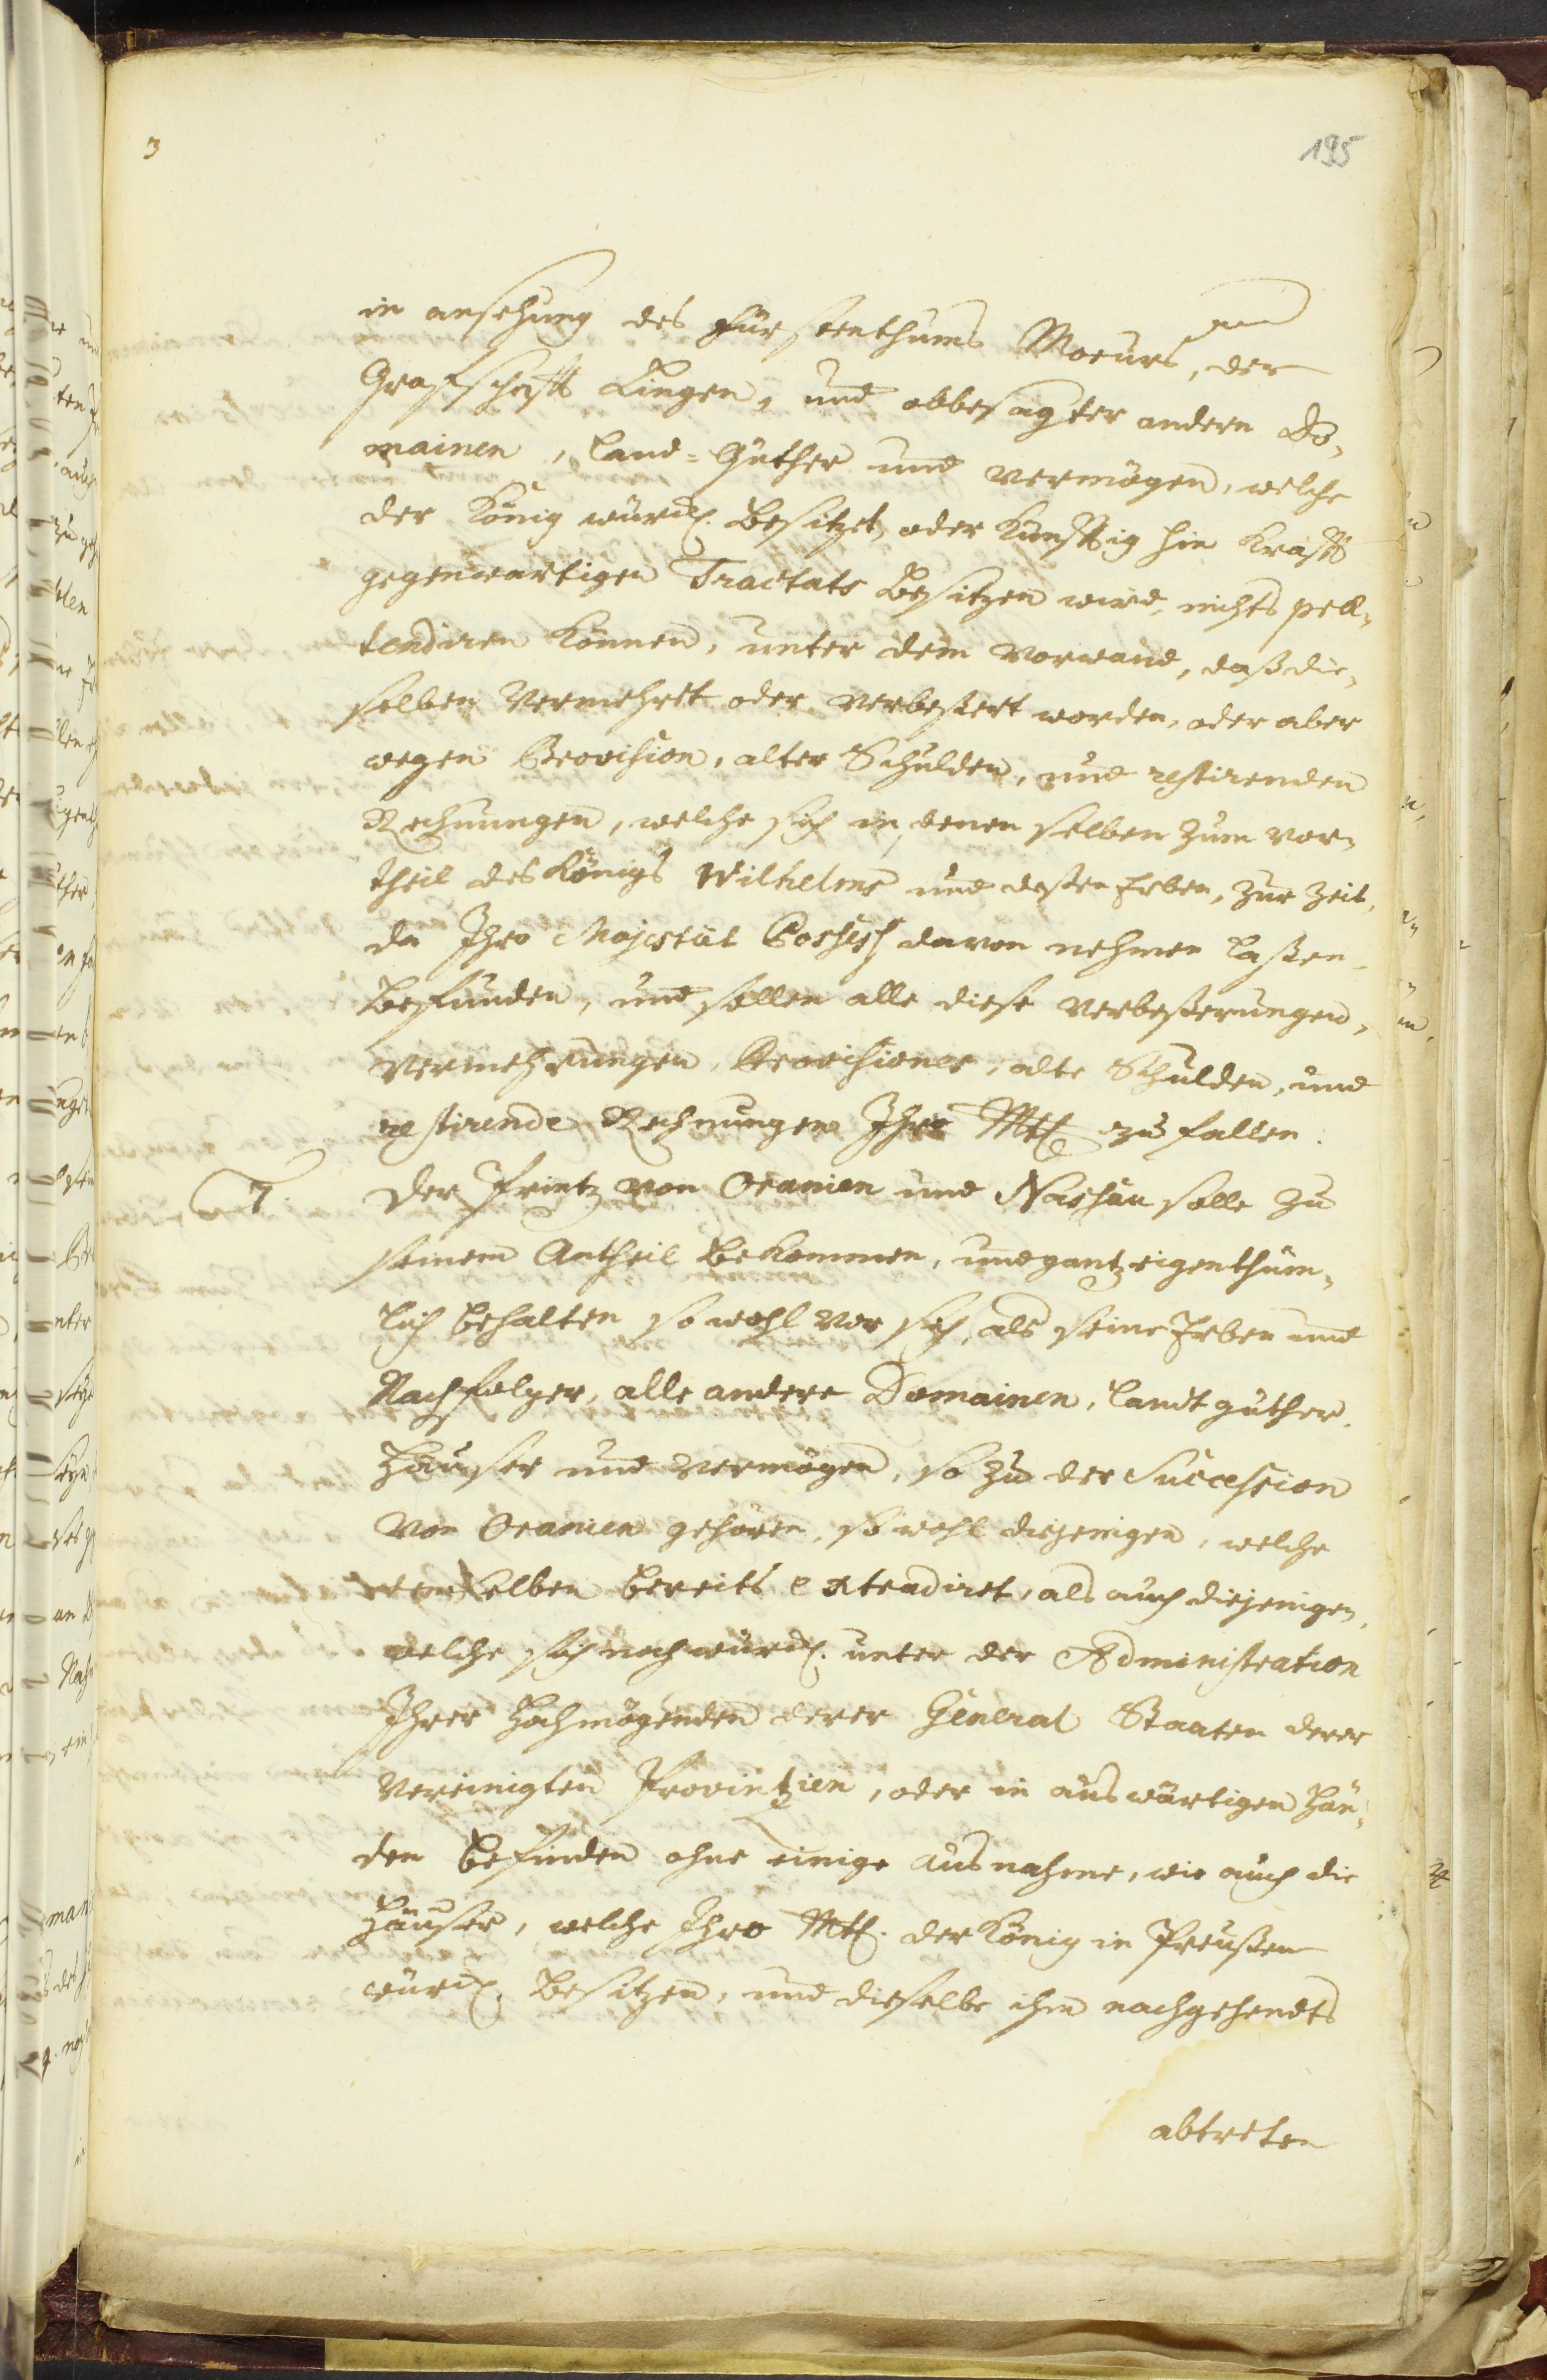 3
195
und
in ansehung des Fürstenthums Moeurs, der
Graffschafft Lingen, und obbesagter andern Do„
mainen, Land-Güther und vermögen, welche
der König würckl. besitzet, oder künfftig hin krafft
gegenwärtigen Tractats besitzen wird, nichts præ„
tendiren können, unter dem vorwand, daß die„
selben vermehret oder verbeßert worden, oder aber
wegen Provision, alter Schulden, und restirenden
Rechnungen, welche sich in denenselben zum vor„
theil des Königs Wilhelms und deßen Erben, zur Zeit,
da Ihro Majestät Possess davon nehmen laßen
befunden, und sollen alle diese verbeßerungen,
vermehrungen, Provisiones, alte Schulden, und
restirende Rechnungen Ihro Mtt zu fallen.
7. Der Printz von Oranien und Nassau solle zu
seinem Antheil bekommen, und gantz eigenthüm„
lich behalten so wohl vor sich, als seine Erben und
Nachfolger, alle andere Domainen, landtgüther,
Häuser und vermögen, so zu der Succession
von Oranien gehören, so wohl diejenigen, welche
demselben bereits extradiret, als auch diejenigen,
welche sich noch würckl. unter der Administration
Ihrer Hochmögenden derer General Staaten derer
Vereinigten Provintzien, oder in auswärtigen Hän„
den befinden ohne einige ausnahme, wie auch die
Häuser, welche Ihro Mtt. der König in Preußen
würckl. besitzen, und dieselbe ihm nachgehendts
abtreten